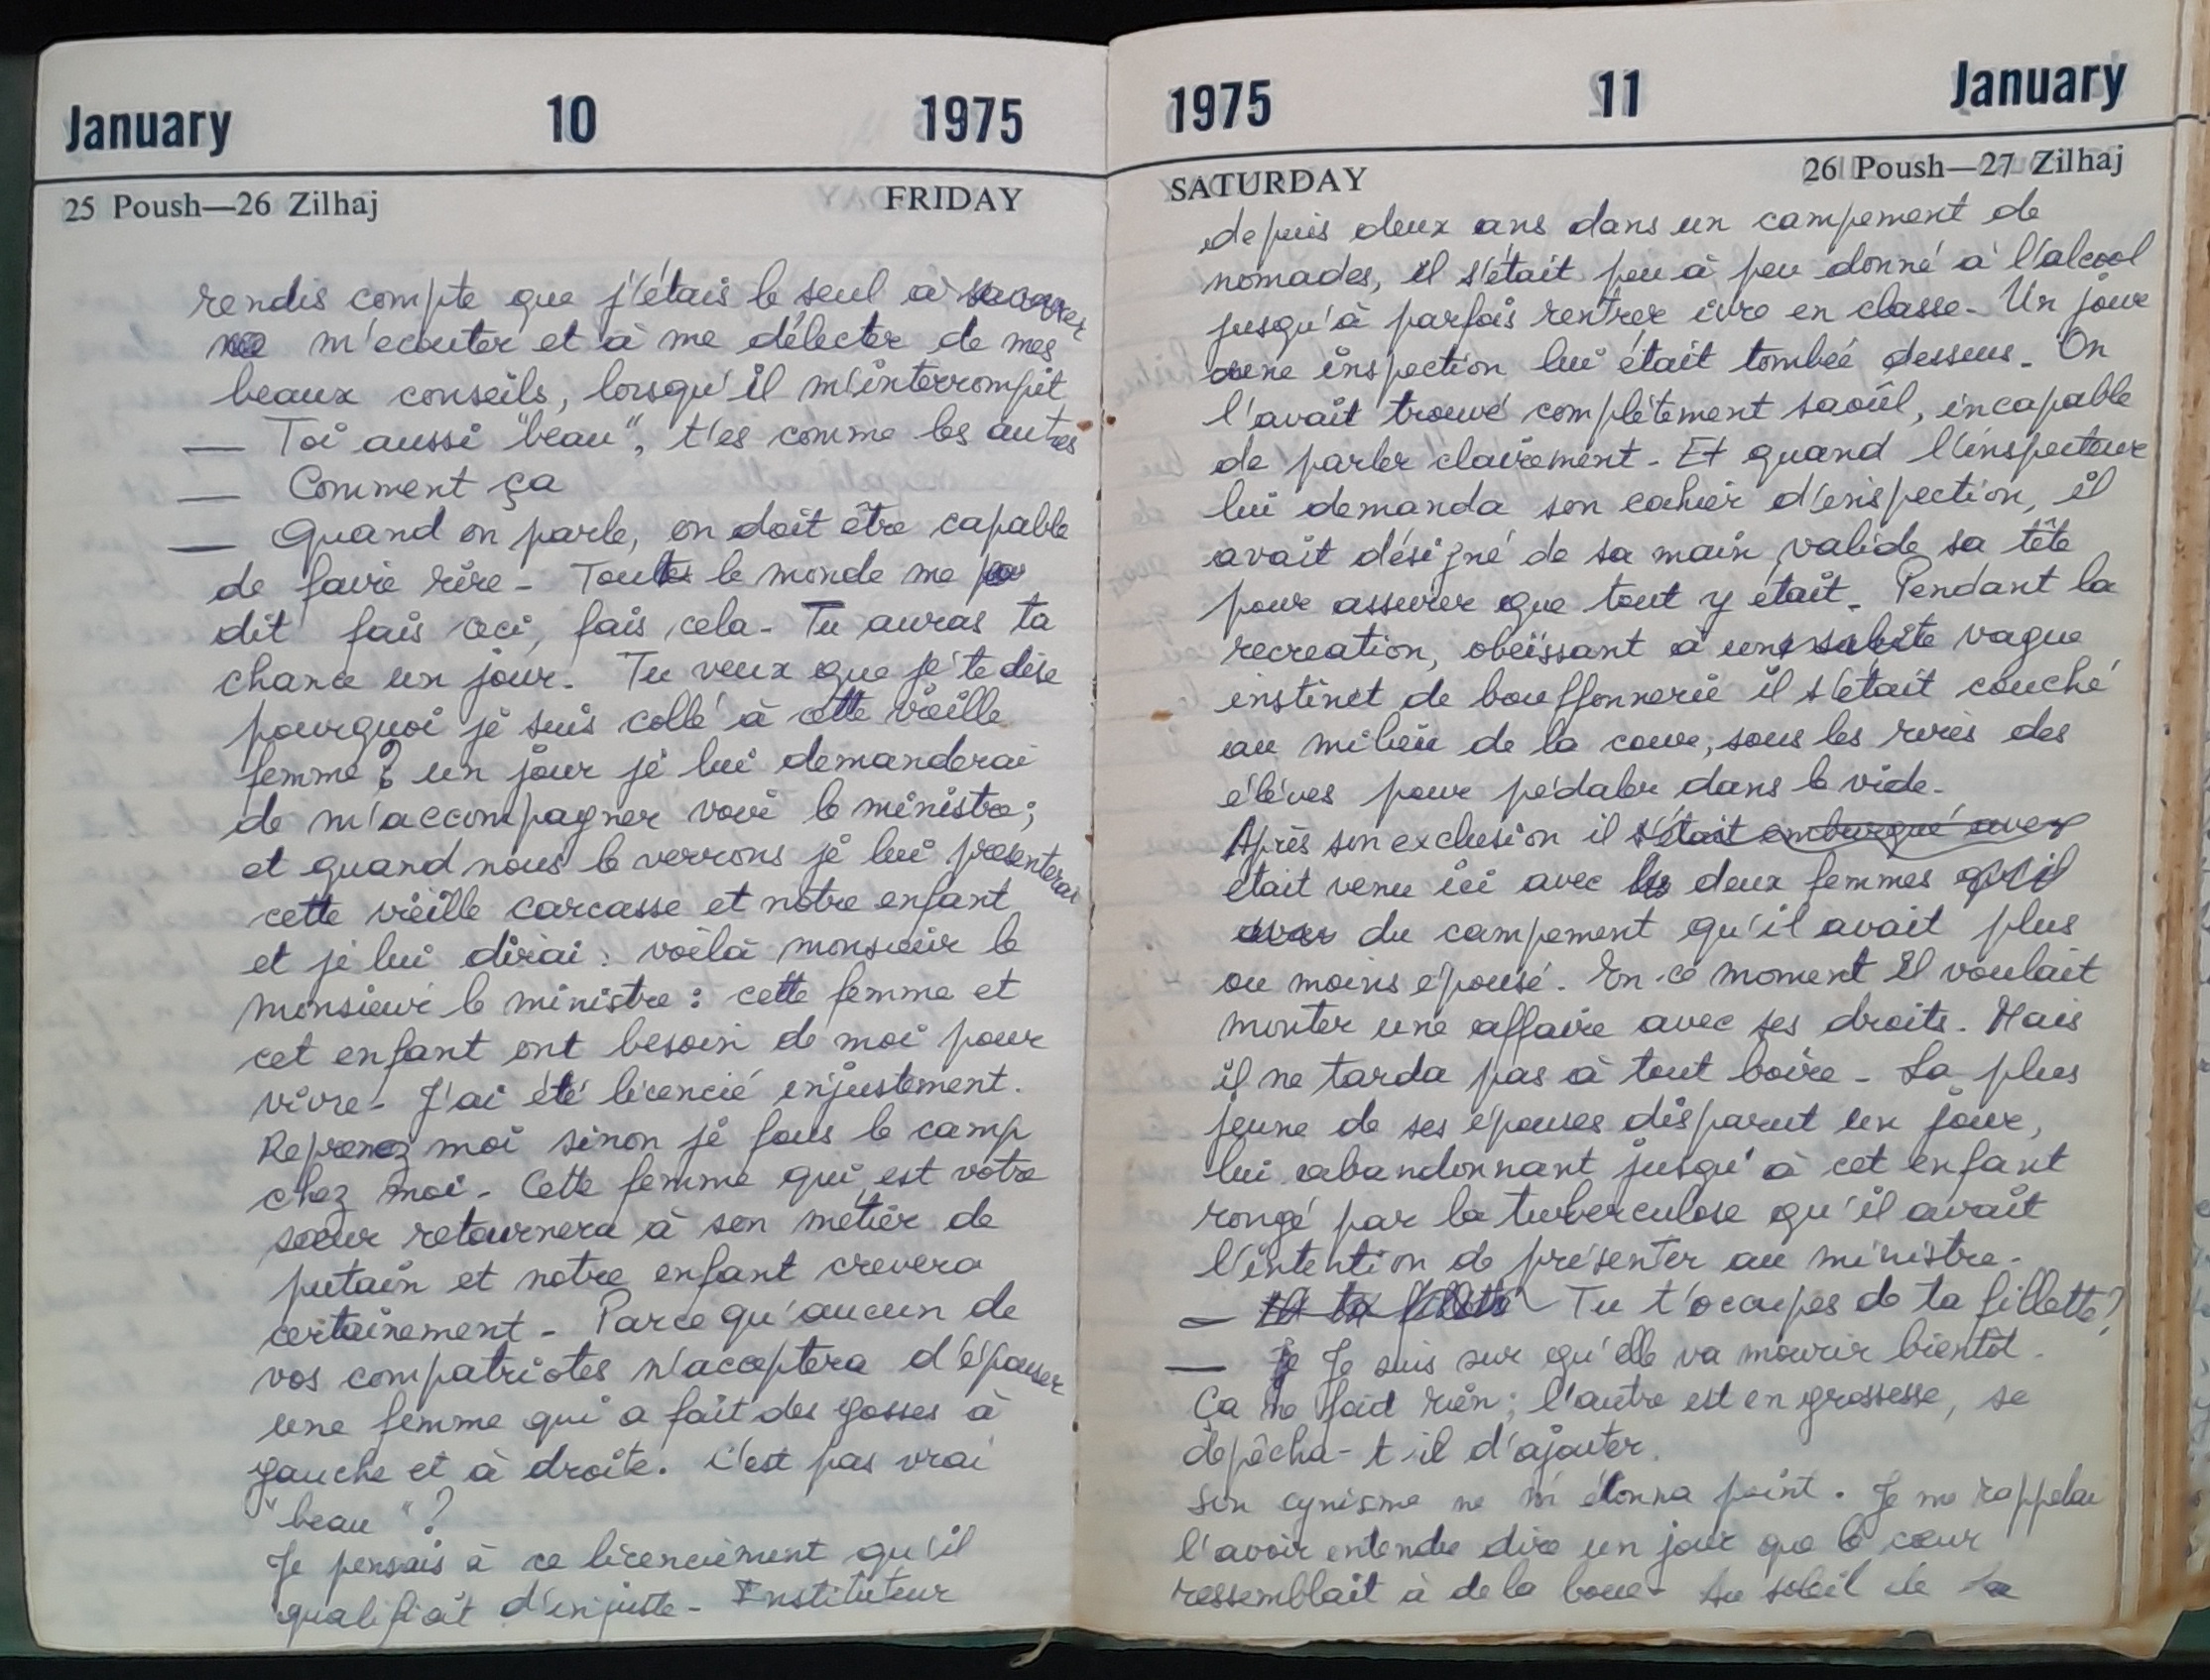 January 10 1975
25 Poush—26 Zilhaj FRIDAY
rendis compte que j'étais le seul à
m'ecouter et à me délecter de mes
beaux conseils, lorsqu'il m'interrompit
— Toi aussi "beau", t'es comme les autres
— Comment ça
— Quand on parle, on doit être capable
de faire rire - Toute le monde me
dit fais ceci, fais cela - Tu auras ta
chance un jour. Tu veux que je te dise
pourquoi je suis collé à cette vieille
femme ? un jour je lui demanderai
de m'accompagner voir le ministre ;
et quand nous le verrons je lui presenterai
cette vieille carcasse et notre enfant
et je lui dirai : voilà monsieur le
monsieur le ministre : cette femme et
cet enfant ont besoin de moi pour
vivre - J'ai été licencié injustement.
Reprenez moi sinon je fous le camp
chez moi - Cette femme qui est votre
sœur retournera à son métier de
putain et notre enfant crevera
certainement - Parce qu'aucun de
vos compatriotes n'acceptera d'épouser
une femme qui a fait des gosses à
gauche et à droite. C'est pas vrai
"beau" ?
Je pensais à ce licenciement qu'il
qualifiait d'injuste - Instituteur
1975 11 January
SATURDAY 26 Poush—27 Zilhaj
depuis deux ans dans un campement de
nomades, il s'était peu à peu donné à l'alcool
jusqu'à parfois rentrer ivre en classe - Un jour
une inspection lui était tombée dessus - On
l'avait trouvé complètement saoûl, incapable
de parler clairement - Et quand l'inspecteur
lui demanda son cahier d'inspection, il
avait désigné de sa main valide sa tête
pour assurer que tout y était - Pendant la
recreation, obéissant à une subite vague
instinct de bouffonnerie il s'était couché
au milieu de la cour, sous les rires des
élèves pour pédaler dans le vide -
Après son exclusion il s'était embarqué avec
était venu ici avec les deux femmes qu'il
avec du campement qu'il avait plus
ou moins épousé. En ce moment il voulait
monter une affaire avec ses droits. Mais
il ne tarda pas à tout boire - La plus
jeune de ses épouses disparut un jour,
lui abandonnant jusqu'à cet enfant
rongé par la tuberculose qu'il avait
l'intention de présenter au ministre -
— Et ta fillette Tu t'occupes de ta fillette ?
— Je Je suis sur qu'elle va mourir bientôt.
Ça ne fait rien ; l'autre est en grossesse, se
depêcha-t-il d'ajouter.
Son cynisme ne m'étonna point. Je me rappelai
l'avoir entendu dire un jour que le cœur
ressemblait à de la boue - Au soleil de la